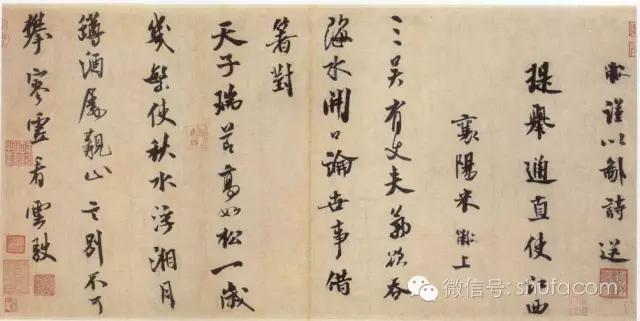 黻謹以鄙詩送
提舉通直使江西
襄陽米黻上
三吳有丈夫氣欲吞
海水開口論世事借
箸對
天子瑞節高如松一歲
幾繁使秋水浮湘月
罇酒屬親山言別不可
攀寒雲看雲駛
微信号: shufacom